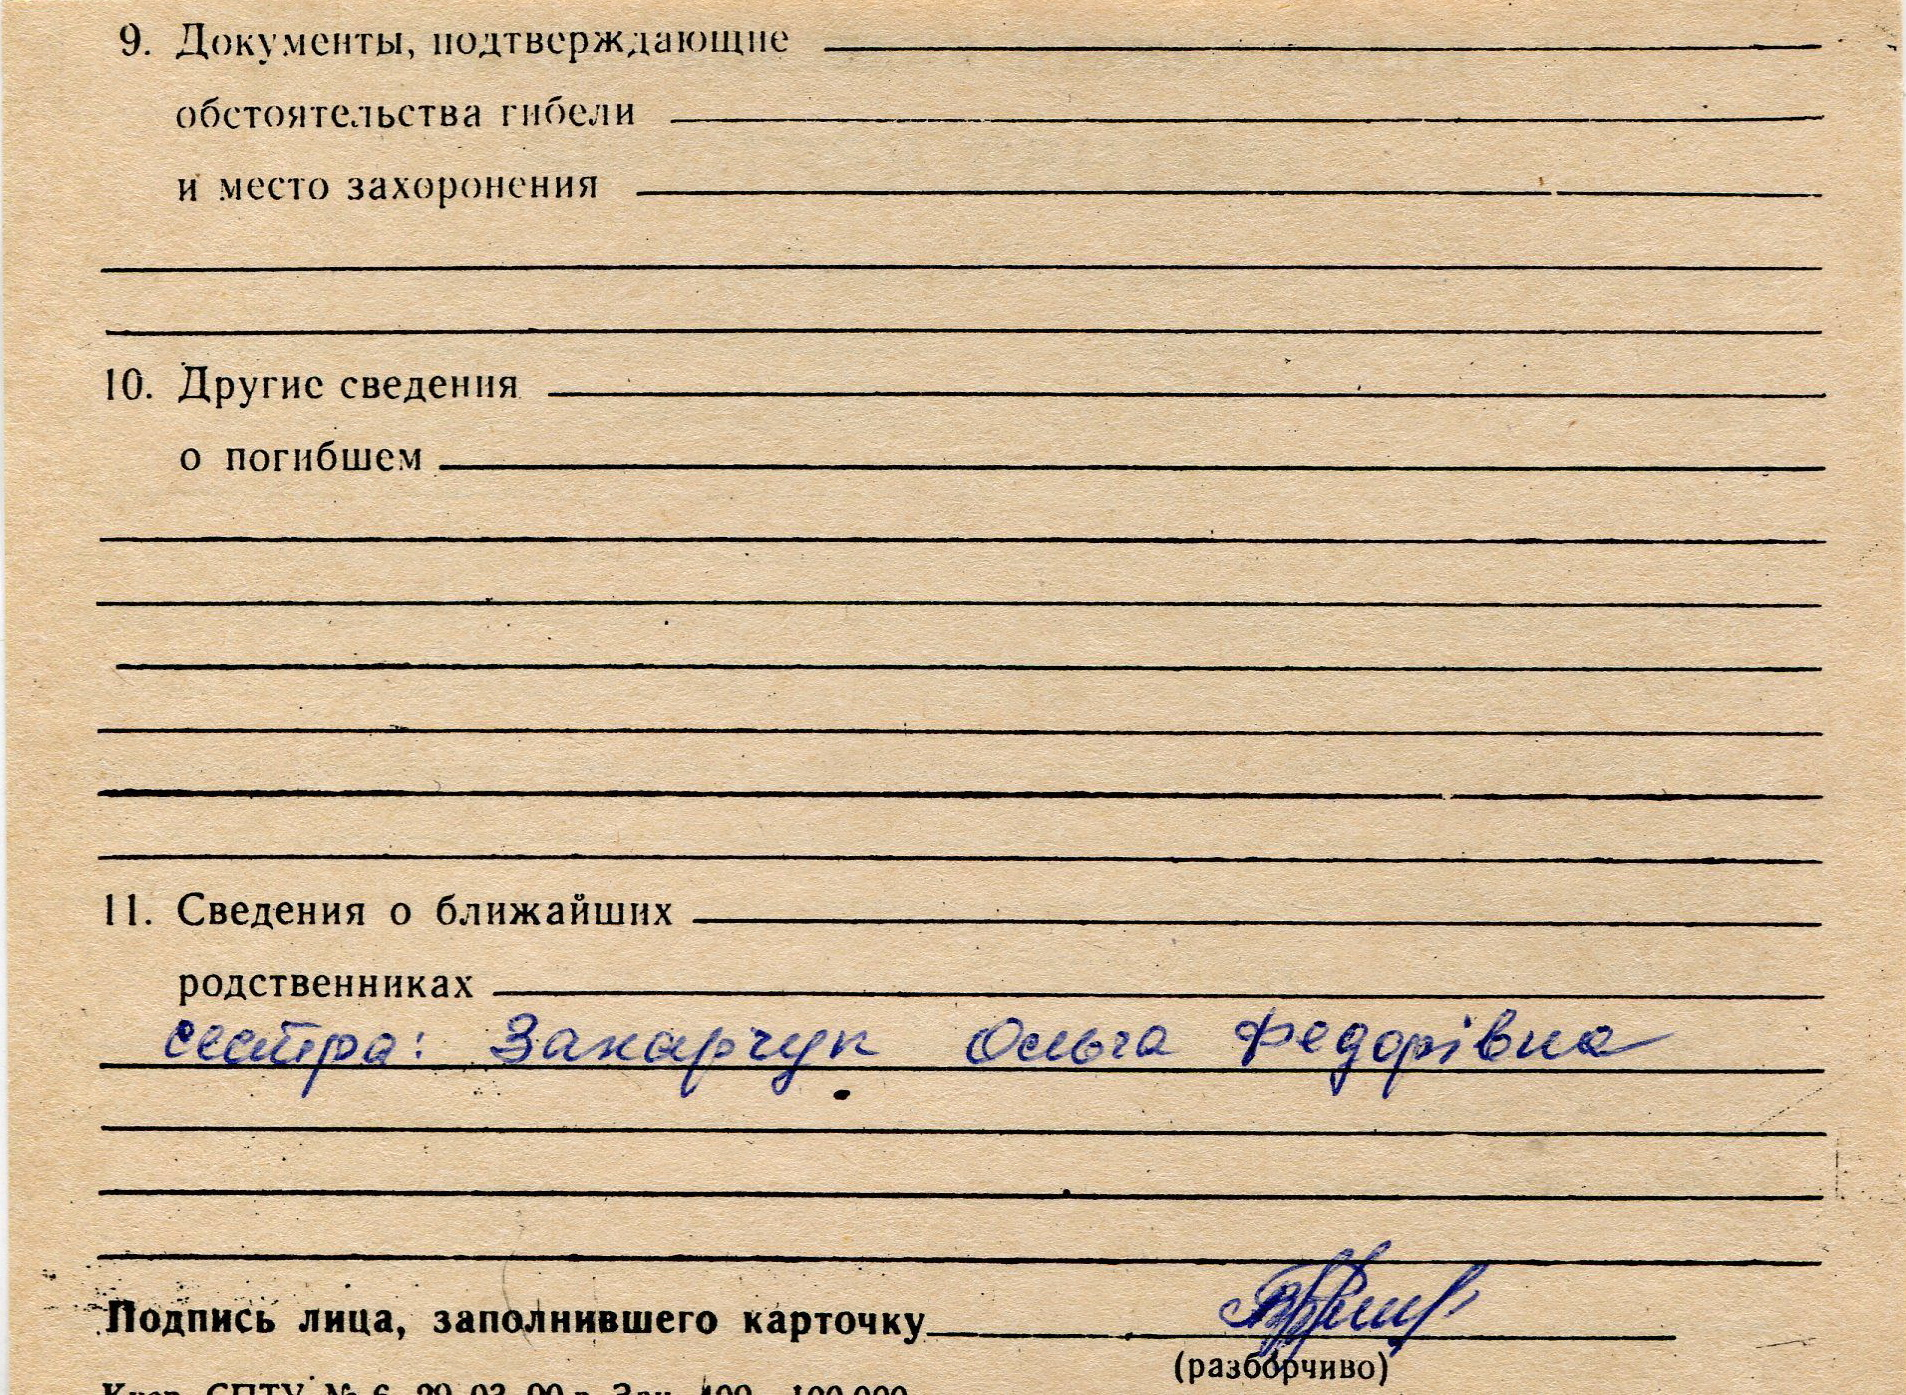 9. Документы, подтверждающие
обстоятельства гибели
и место захоронения
10. Другие сведения
о погибшем
11. Сведения о ближайших
родственниках
сестра: Захарчук Ольга Федорівна
Подпись лица, заполнившего карточку
(разборчиво)
СПТУ № 6 29 03 90 г. Зак. 409 100.000